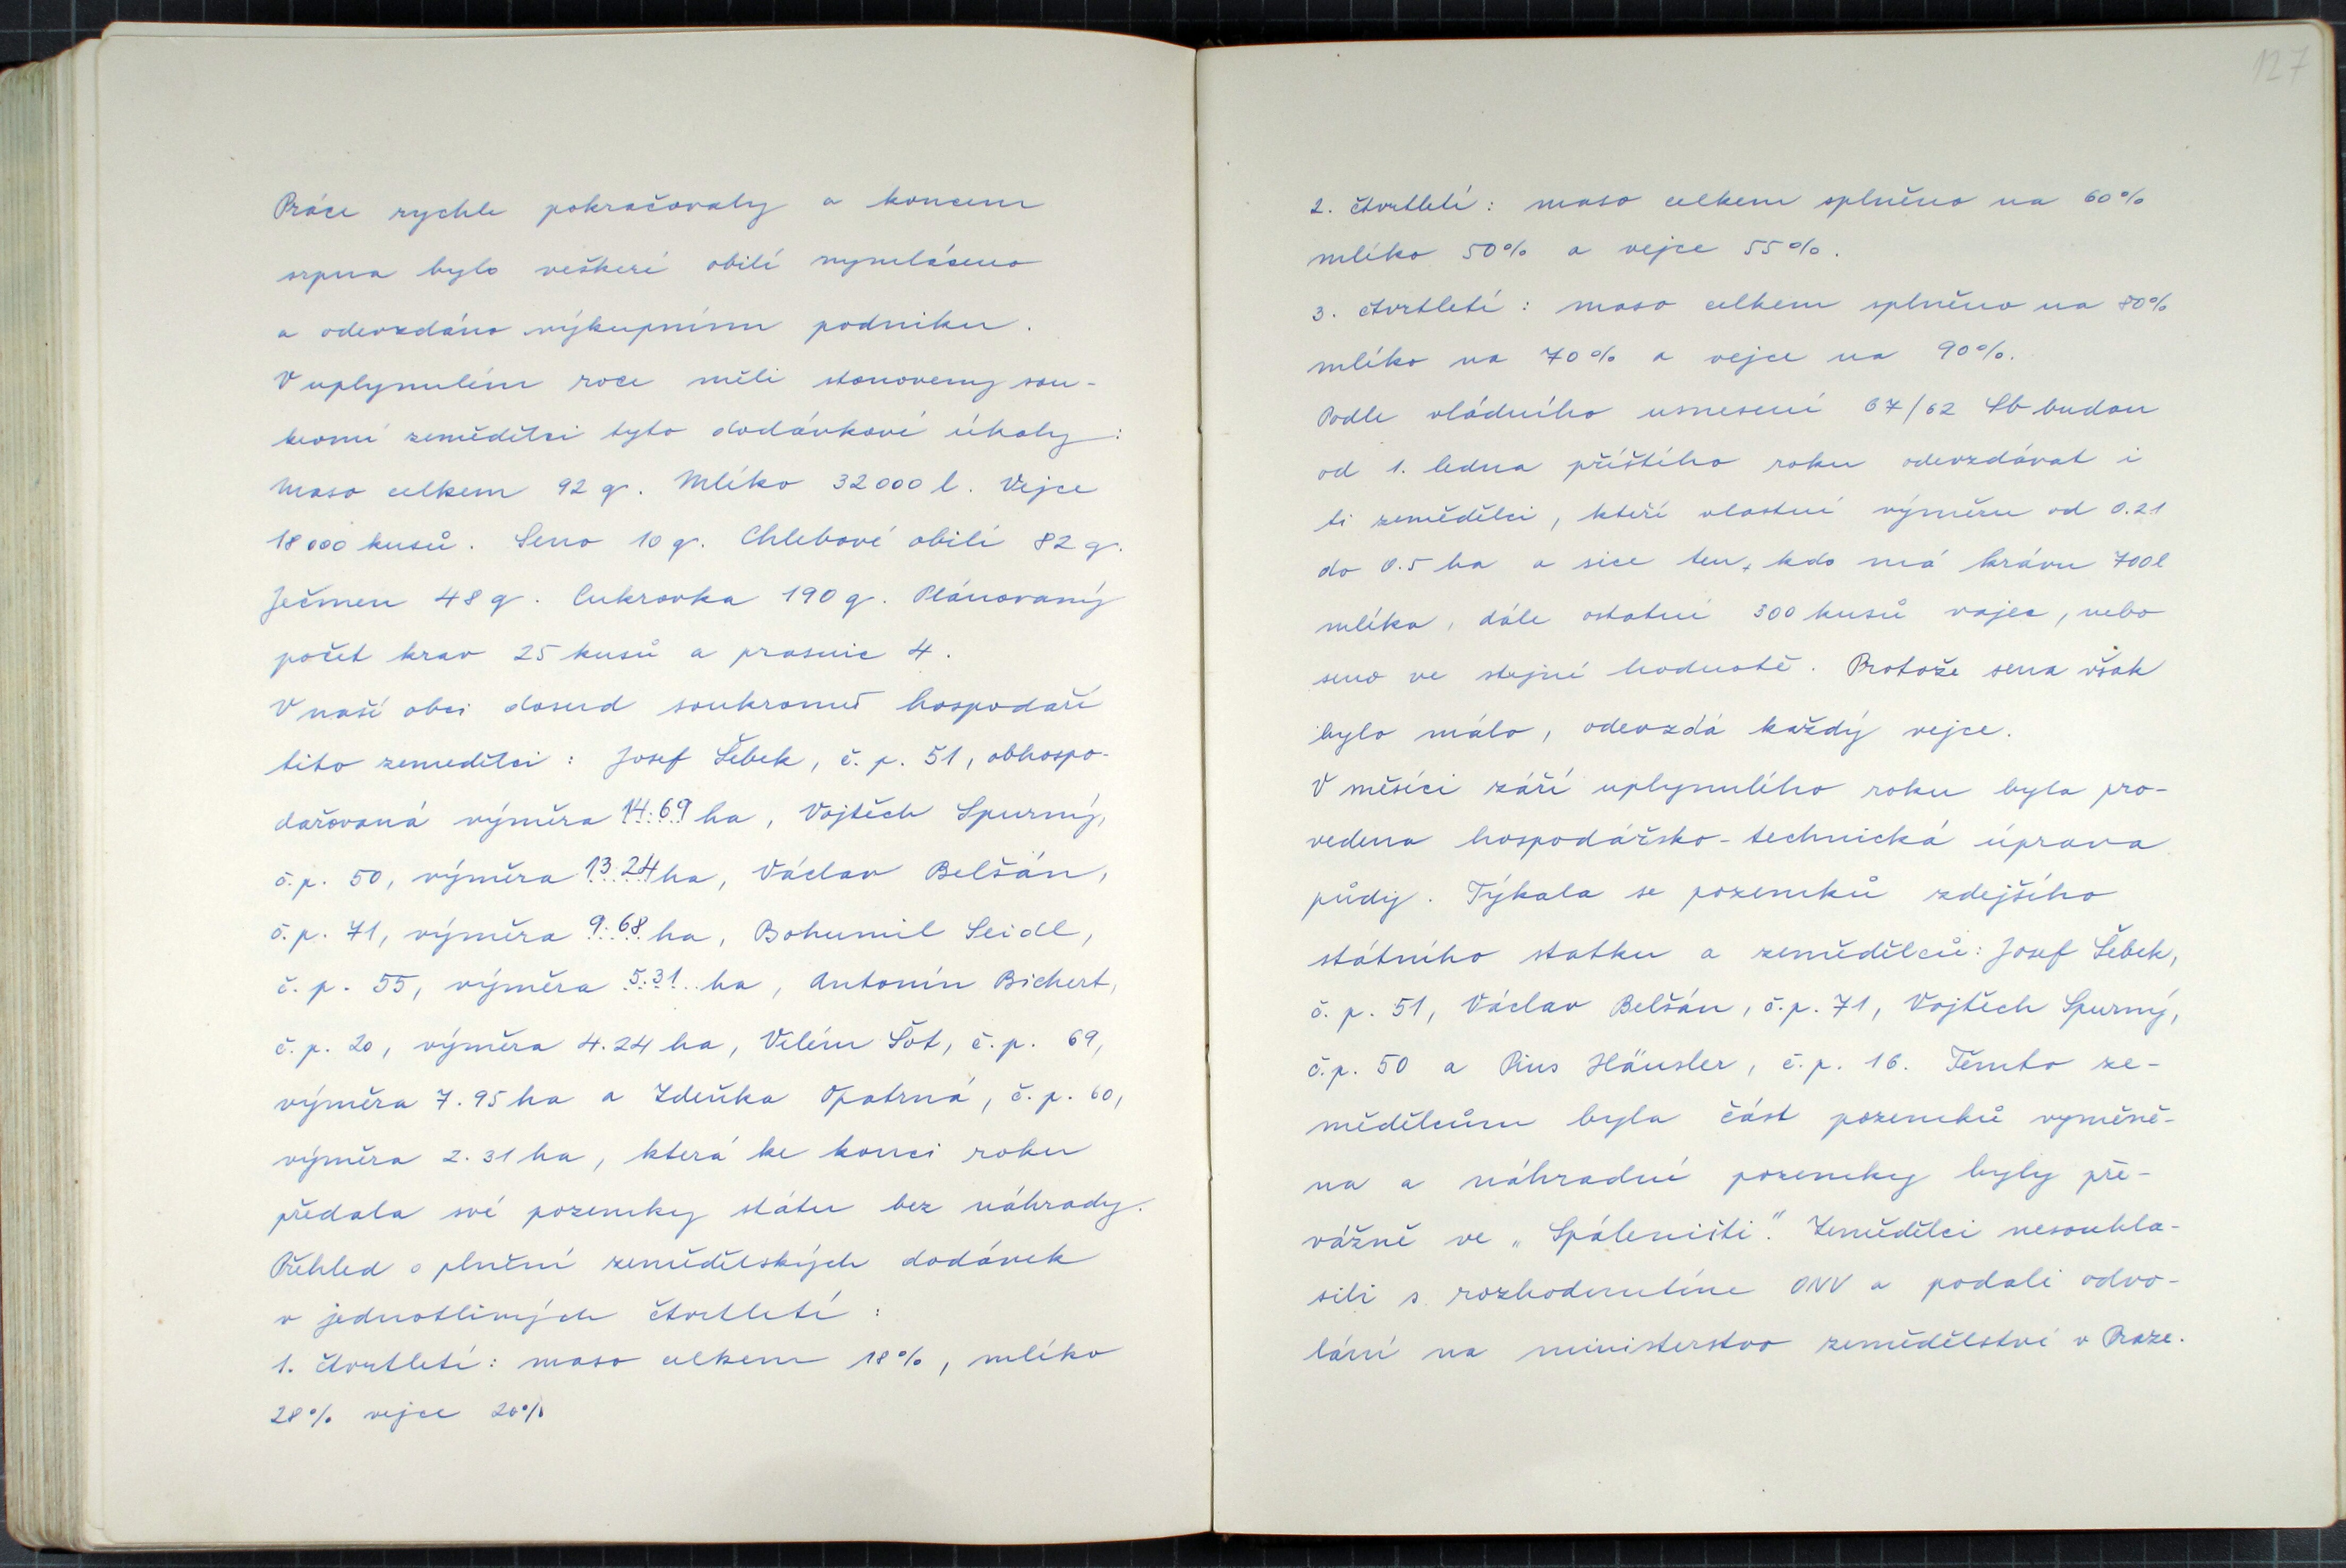 Práce rychle pokračovaly a koncem
srpna bylo veškeré obilí vymláceno
a odevzdáno výkupnímu podniku.
V uplynulém roce měli stanoveny sou-
kromí zemědělci tyto dodávkové úkoly:
Maso celkem 92 q. Mléko 32000 l. Vejce
18000 kusů. Seno 10 q. Chlebové obilí 82 q.
Ječmen 48 q. Cukrovka 190 q. Plánovaný
počet krav 25 kusů a prasnic 4.
V naší obci dosud soukromě hospodaří
tito zemedělci: Josef Šebek, č. p. 51, obhospo-
dařovaná výměra 14.69 ha, Vojtěch Spurný,
č.p. 50, výměra 13.24 ha, Václav Belšán,
č.p. 71, výměra 9.68 ha, Bohumil Seidl,
č. p. 55, výměra 5.31 ha, Antonín Bichert,
č.p. 20, výměra 4.24 ha, Vilém Šot, č.p. 69,
výměra 7.95 ha a Zdeňka Opatrná, č.p. 60,
výměra 2.31 ha, která ke konci roku
předala své pozemky státu bez náhrady.
Přehled o plnění zemědělských dodávek
v jednotlivých čtvrtletí:
1. čtvrtletí: maso celkem 18%, mléko
28% vejce 20%
127
2. čtvrtletí: maso celkem splněno na 60%
mléko 50% a vejce 55%.
3. čtvrtletí: maso celkem splněno na 80%
mléko na 70% a vejce na 90%.
Podle vládního usnesení 67/62 Sb budou
od 1. ledna příštího roku odevzdávat i
ti zemědělci, kteří vlastní výměru od 0.21
do 0.5 ha a sice ten, kdo má krávu 700l
mléka, dále ostatní 300 kusů vajec, nebo
seno ve stejné hodnotě. Protože sena však
bylo málo, odevzdá každý vejce.
V měsíci září uplynulého roku byla pro-
vedena hospodářsko-technická úprava
půdy. Týkala se pozemků zdejšího
státního statku a zemědělců: Josef Šebek,
č. p. 51, Václav Belšán, č.p. 71, Vojtěch Spurný,
č.p. 50 a Pius Häusler, č.p. 16. Těmto ze-
mědělcům byla část pozemků vyměně-
na a náhradní pozemky byly pře-
vážně ve „Spáleništi". Zemědělci nesouhla-
sili s rozhodnutím ONV a podali odvo-
lání na ministerstvo zemědělství v Praze.